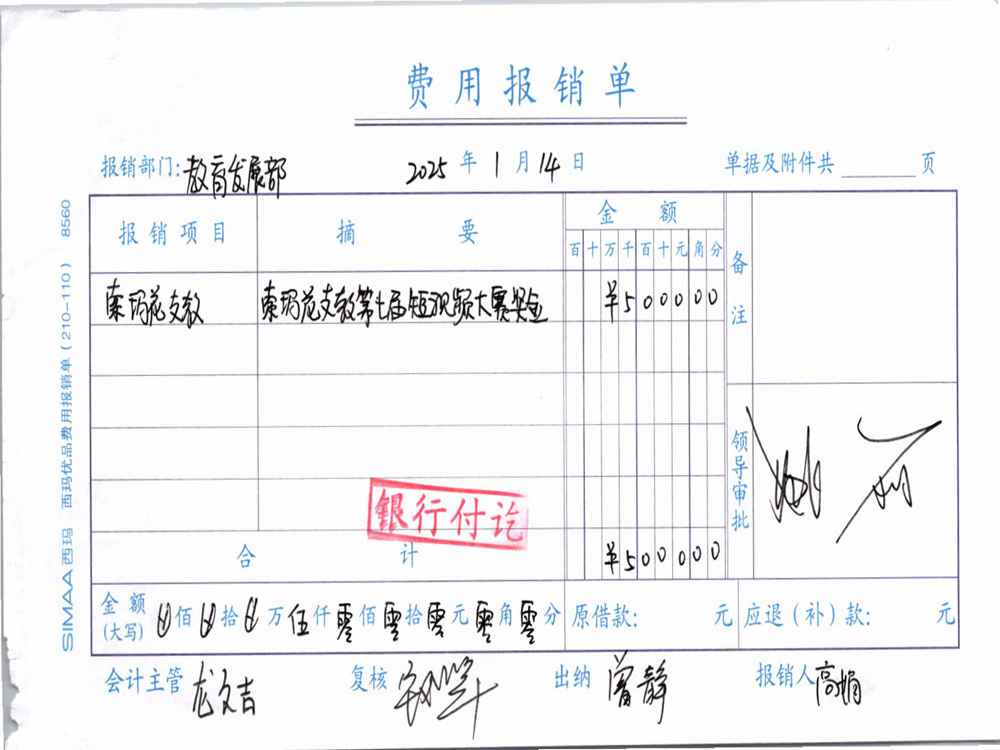 费用报销单
报销部门:教育发展部 2025 年 1 月 14 日 单据及附件共 页
报销项目 摘要 金额 备注
百十万千百十元角分
索玛花支教 索玛花支教第七届短视频大赛奖金 ¥500000
领导审批
银行付讫
合计 ¥500000
金额(大写) 佰 拾 万 伍 仟 零 佰 零 拾 零 元 零 角 零 分 原借款: 元 应退(补)款: 元
会计主管 龙文吉 复核 出纳 曾静 报销人 高娟
SIMAA西玛 西玛优品费用报销单(210-110) 8560